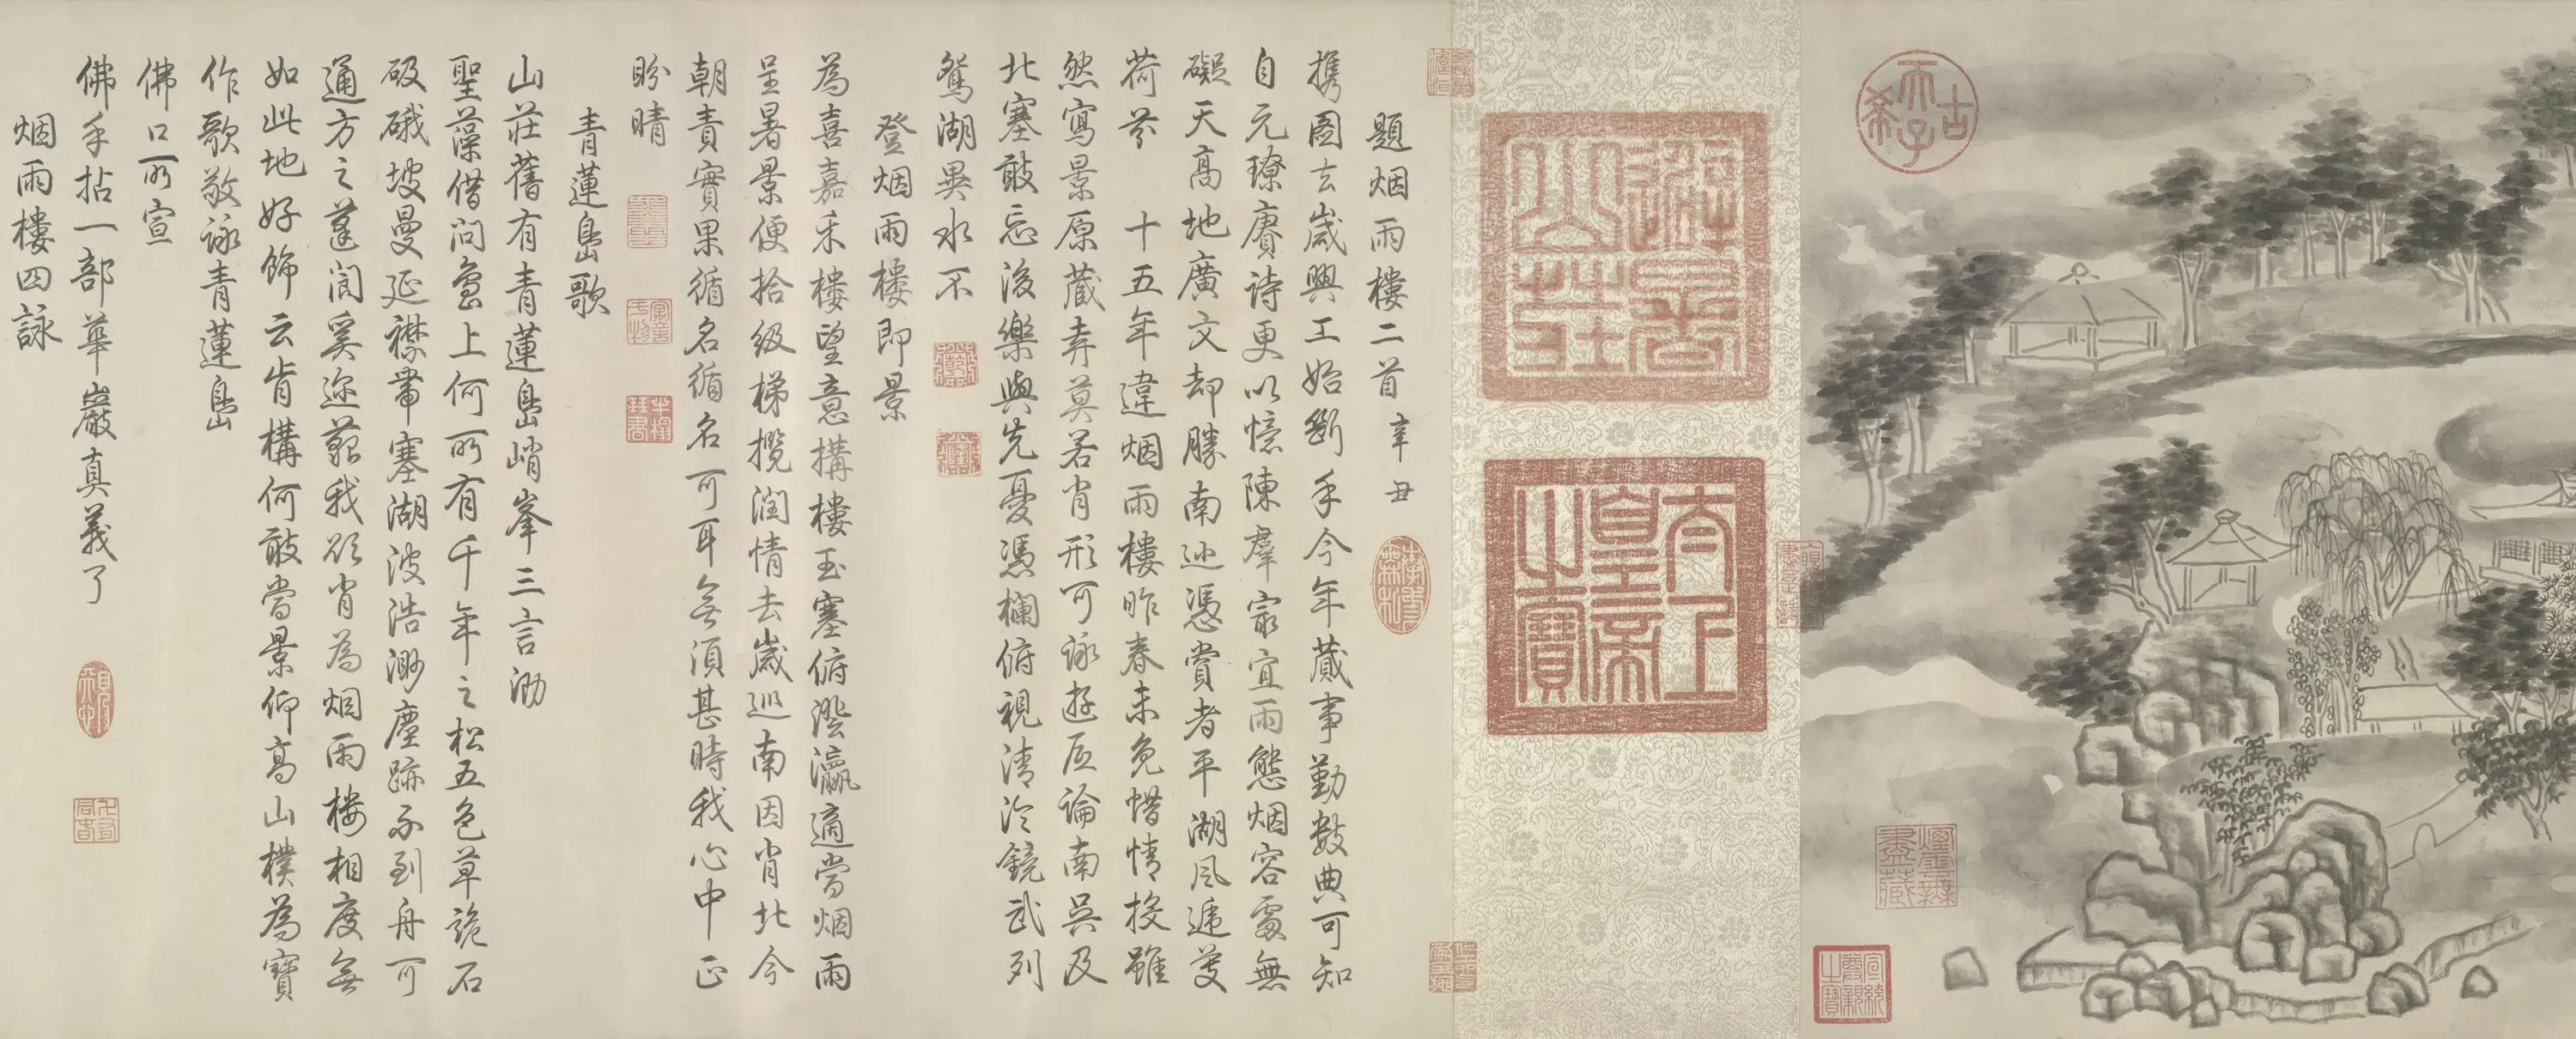 題烟雨樓二首辛丑
携圖去歲興工始斷手今年蕆事勤數典可知
自元璙賡詩更以憶陳羣最宜雨態烟容處無
礙天高地廣文却勝南巡憑賞者平湖風遞芰
荷芬 十五年違烟雨樓昨春未免惜情投雖
然寫景原蔵弆莫若肖形可詠遊叵論南吳及
北塞敢忘後樂與先憂憑欄俯視清泠鏡武列
鴛湖異水不
登烟雨樓即景
為喜嘉禾樓望意搆樓玉塞俯瀅瀛適當烟雨
呈暑景便拾級梯攬潤情去歲巡南因肖北今
朝責實果循名循名可耳無須甚時我心中正
盼晴
青蓮島歌
山莊舊有青蓮島峭峯三言泐
聖藻借問島上何所有千年之松五色草詭石
砐硪坡曼延襟帶塞湖波浩渺塵跡不到舟可
通方之蓬閬奚迩藐我欲肖為烟雨樓相度無
如此地好飾云肯構何敢當景仰高山樸為寶
作歌敬詠青蓮島
佛口所宣
佛手拈一部華嚴真義了
烟雨樓四詠
古希天子
避暑山莊
太上皇帝之寶
宣統尊親之寶